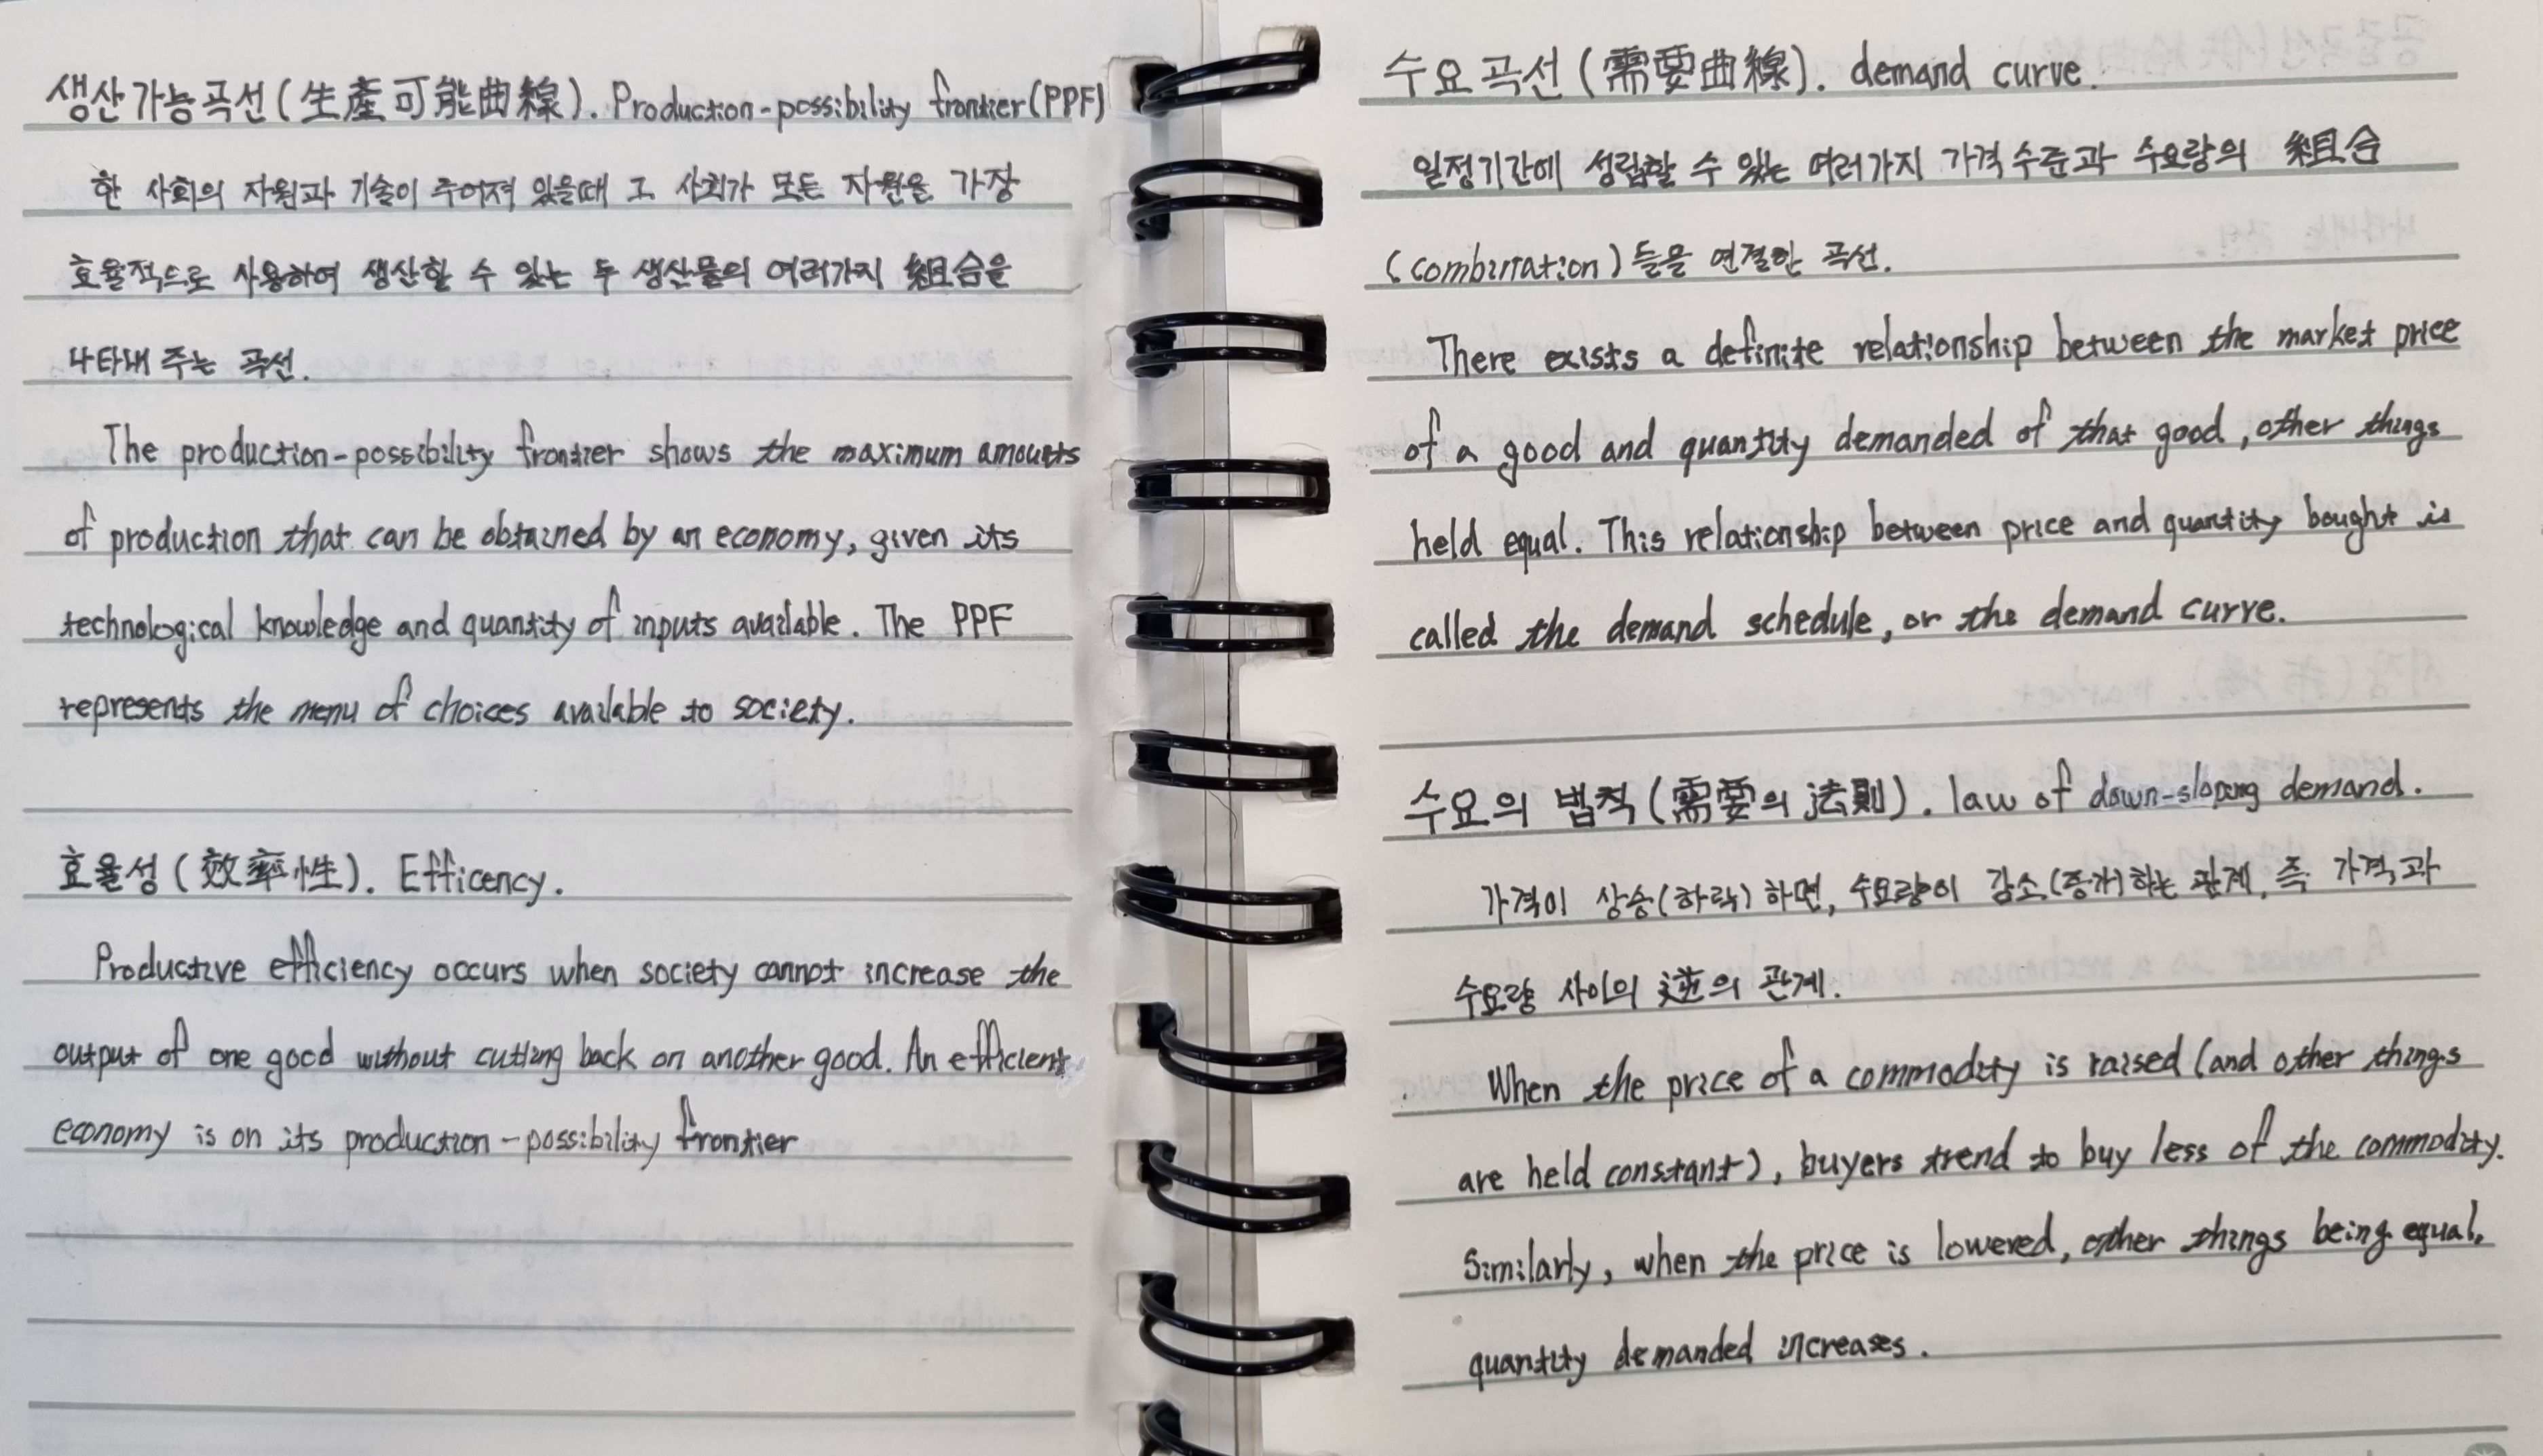 생산가능곡선(生産可能曲線). Production-possibility frontier(PPF)
한 사회의 자원과 기술이 주어져 있을때 그 사회가 모든 자원을 가장
효율적으로 사용하여 생산할 수 있는 두 생산물의 여러가지 組合을
나타내 주는 곡선.
The production-possibility frontier shows the maximum amounts
of production that can be obtained by an economy, given its
technological knowledge and quantity of inputs available. The PPF
represents the menu of choices available to society.
효율성(效率性). Efficency.
Productive efficiency occurs when society cannot increase the
output of one good without cutting back on another good. An efficient
economy is on its production-possibility frontier
수요곡선(需要曲線). demand curve.
일정기간에 성립할 수 있는 여러가지 가격수준과 수요량의 組合
(combination)들을 연결한 곡선.
There exists a definite relationship between the market price
of a good and quantity demanded of that good, other things
held equal. This relationship between price and quantity bought is
called the demand schedule, or the demand curve.
수요의 법칙(需要의 法則). law of down-sloping demand.
가격이 상승(하락)하면, 수요량이 감소(증가)하는 관계, 즉 가격과
수요량 사이의 逆의 관계.
When the price of a commodity is raised (and other things
are held constant), buyers trend to buy less of the commodity.
Similarly, when the price is lowered, other things being equal,
quantity demanded increases.